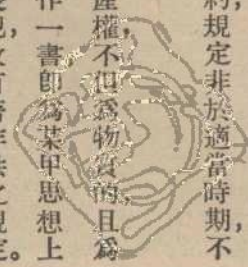 約，規定非於適當時期，不
產權，不但爲物質的，且爲
作一書卽爲某甲思想上